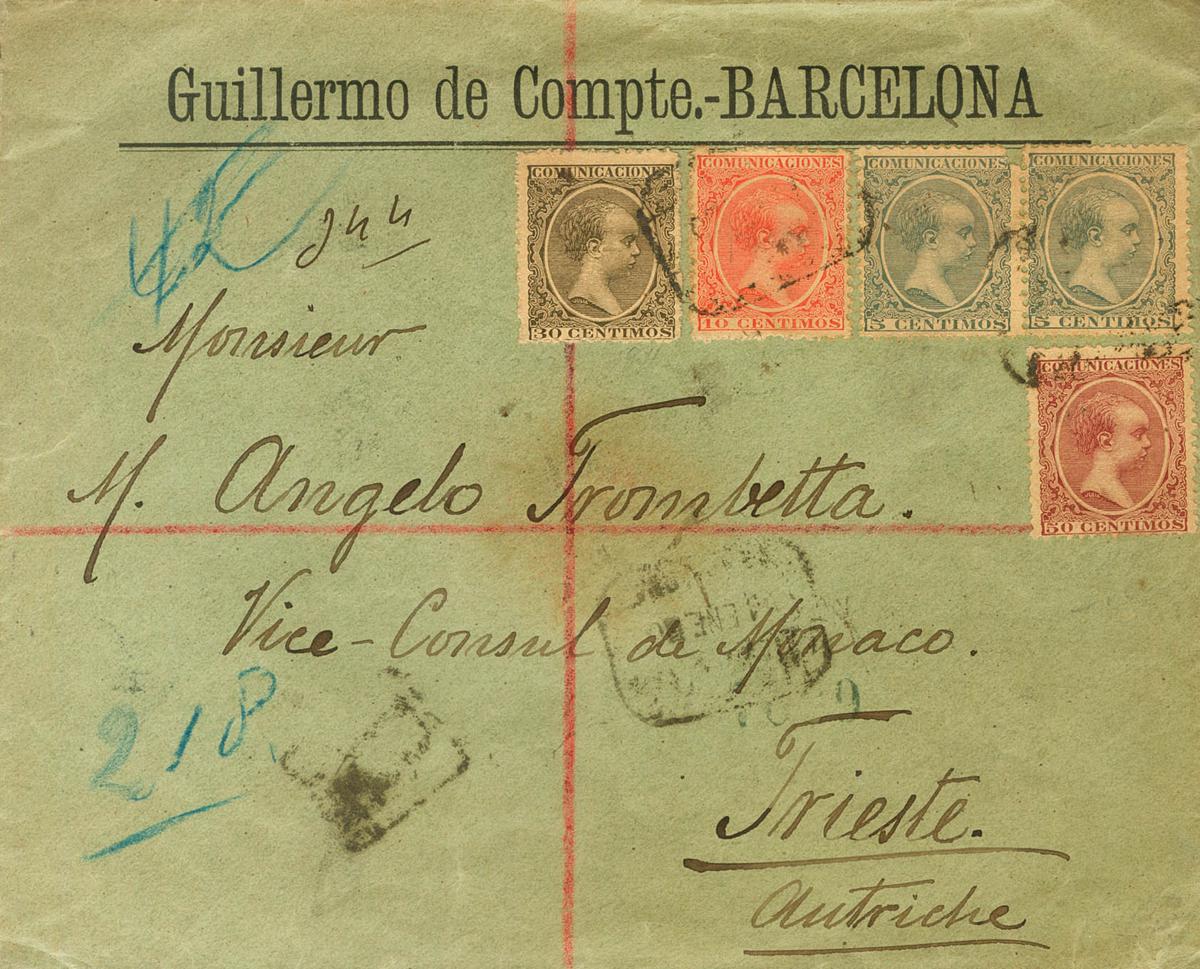 Guillermo de Compte.-BARCELONA
COMUNICACIONES
30 CENTIMOS
COMUNICACIONES
10 CENTIMOS
COMUNICACIONES
5 CENTIMOS
COMUNICACIONES
5 CENTIMOS
COMUNICACIONES
50 CENTIMOS
Monsieur
M. Angelo Trombetta.
Vice-Consul de Monaco.
ENE
218
Trieste.
Autriche